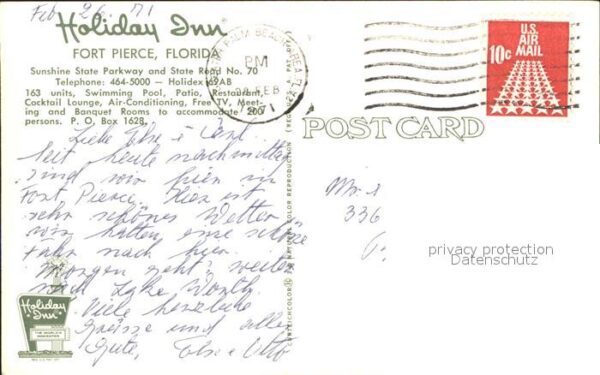 Feb 26. 71
Holiday Inn
FORT PIERCE, FLORIDA
Sunshine State Parkway and State Road No. 70
Telephone: 464-5000 — Holidex
163 units, Swimming Pool, Patio, Restaurant,
Cocktail Lounge, Air-Conditioning, Free TV, Meet-
ing and Banquet Rooms to accommodate 200
persons. P. O. Box 1628.
PM
FEB
1971
U.S.
AIR
MAIL
10c
POST CARD
Liebe Else &
Seit heute nachmittag
sind wir hier in
Fort Pierce. Hier ist
sehr schönes Wetter,
wir hatten eine schöne
Fahr nach hier.
Morgen geht's weiter
nach Lake Worth.
Viele herzliche
Grüsse und alles
Gute, Else & Otto
336
privacy protection
Datenschutz
Holiday
Inn